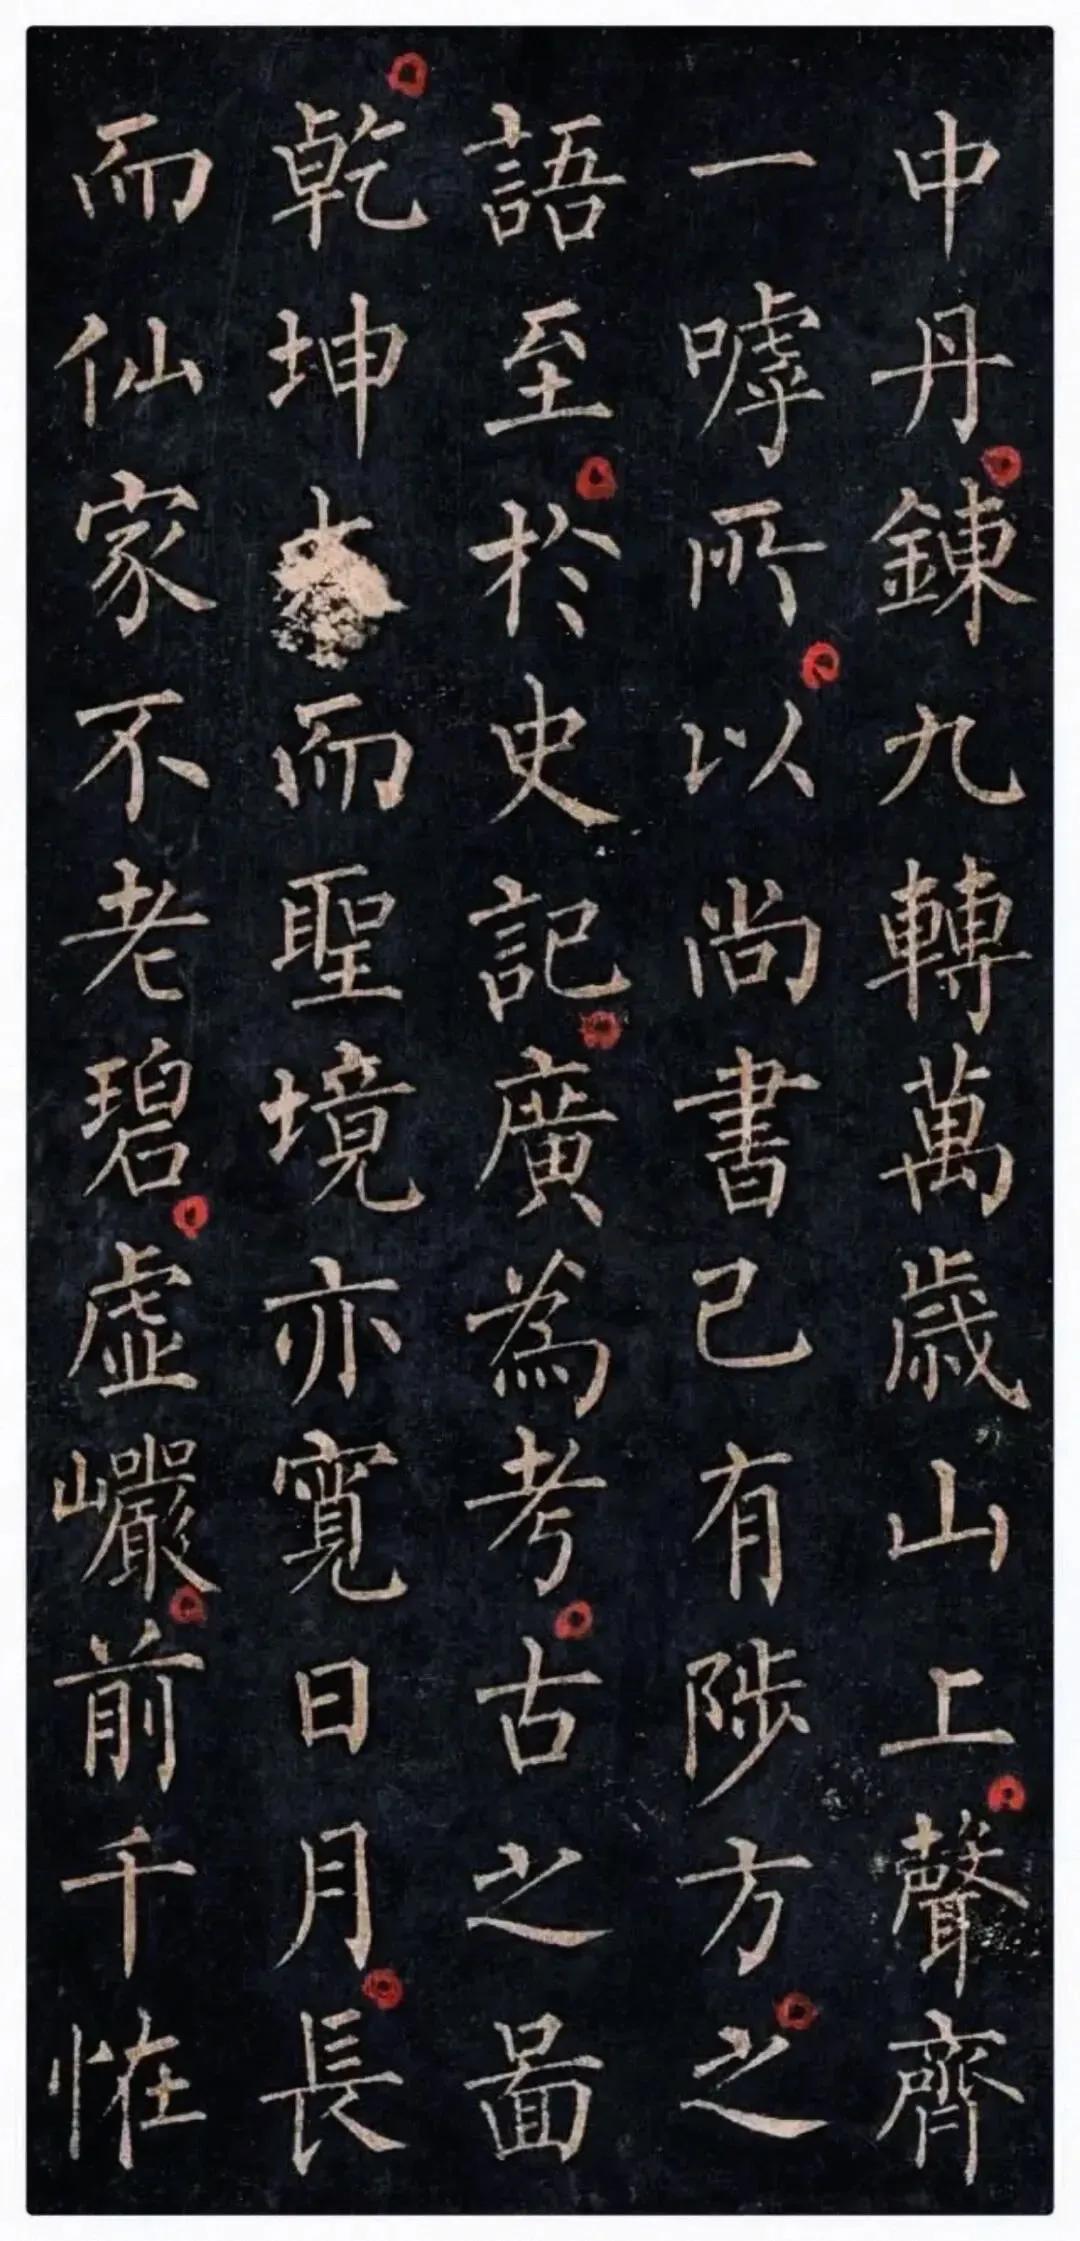 中丹鍊九轉萬歳山上聲齊
一嘑所以尚書已有陟方之
語至於史記廣為考古之啚
乾坤而聖境亦寬日月長
而仙家不老碧虚巗前千恠